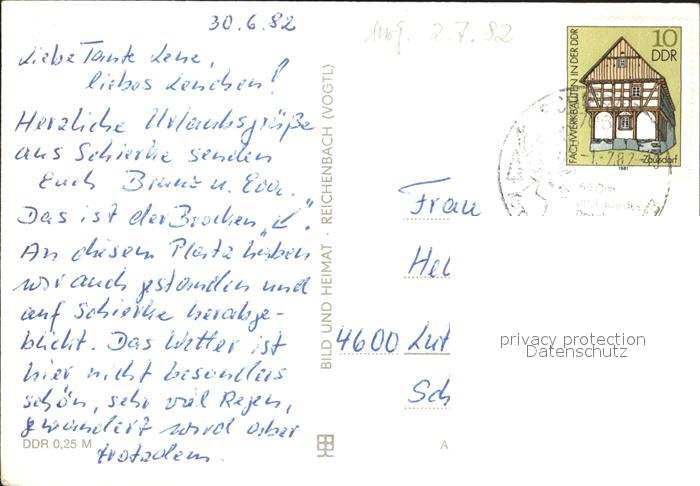 30.6.82
Liebe Tante Lene,
liebes Lenchen!
Herzliche Urlaubsgrüße
aus Schierke senden
Euch Bruno u. Eva.
Das ist der Brocken
An diesem Platz haben
wir auch gestanden und
auf Schierke herabge-
blickt. Das Wetter ist
hier nicht besonders
schön, sehr viel Regen,
gewandert wird aber
trotzdem.
DDR 0,25 M
BILD UND HEIMAT · REICHENBACH (VOGTL)
2.7.82
10
DDR
FACHWERKBAUTEN IN DER DDR
Zaulsdorf
1981
-1.-7.82
Frau
Hel
4600 Lut
Sch
A
privacy protection
Datenschutz